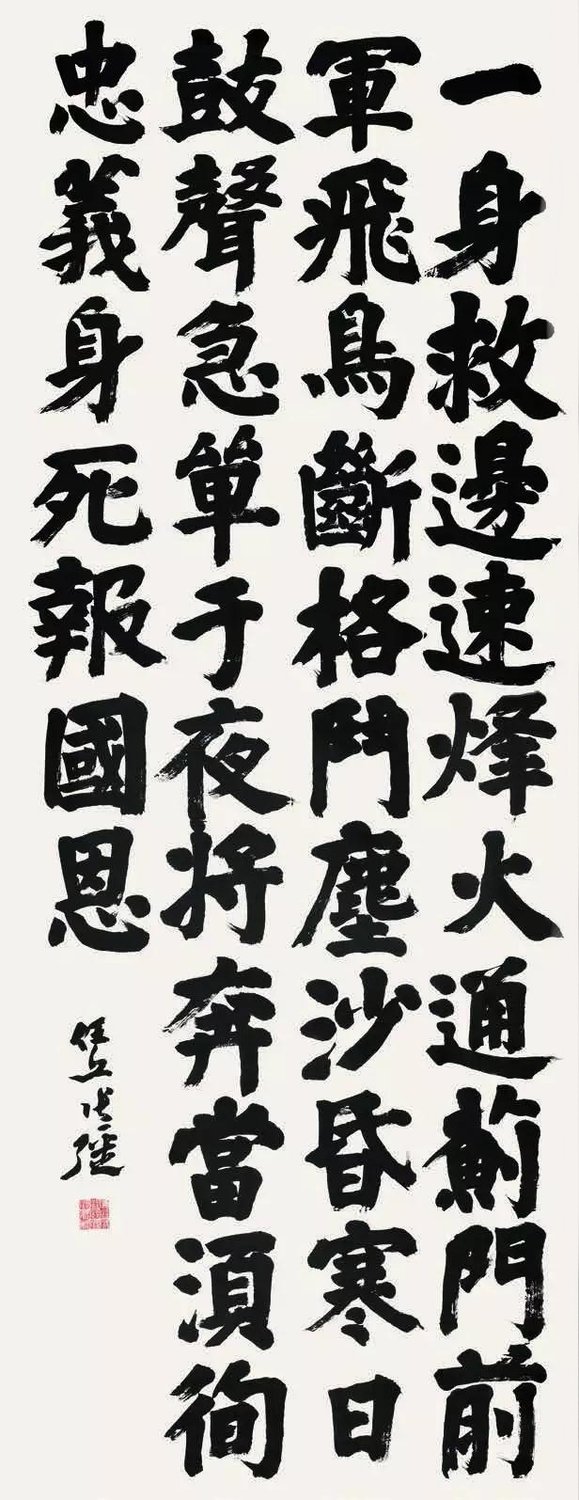 一身救邊速烽火通薊門前
軍飛鳥斷格鬥塵沙昏寒日
鼓聲急單于夜将奔當須徇
忠義身死報國恩
任丘